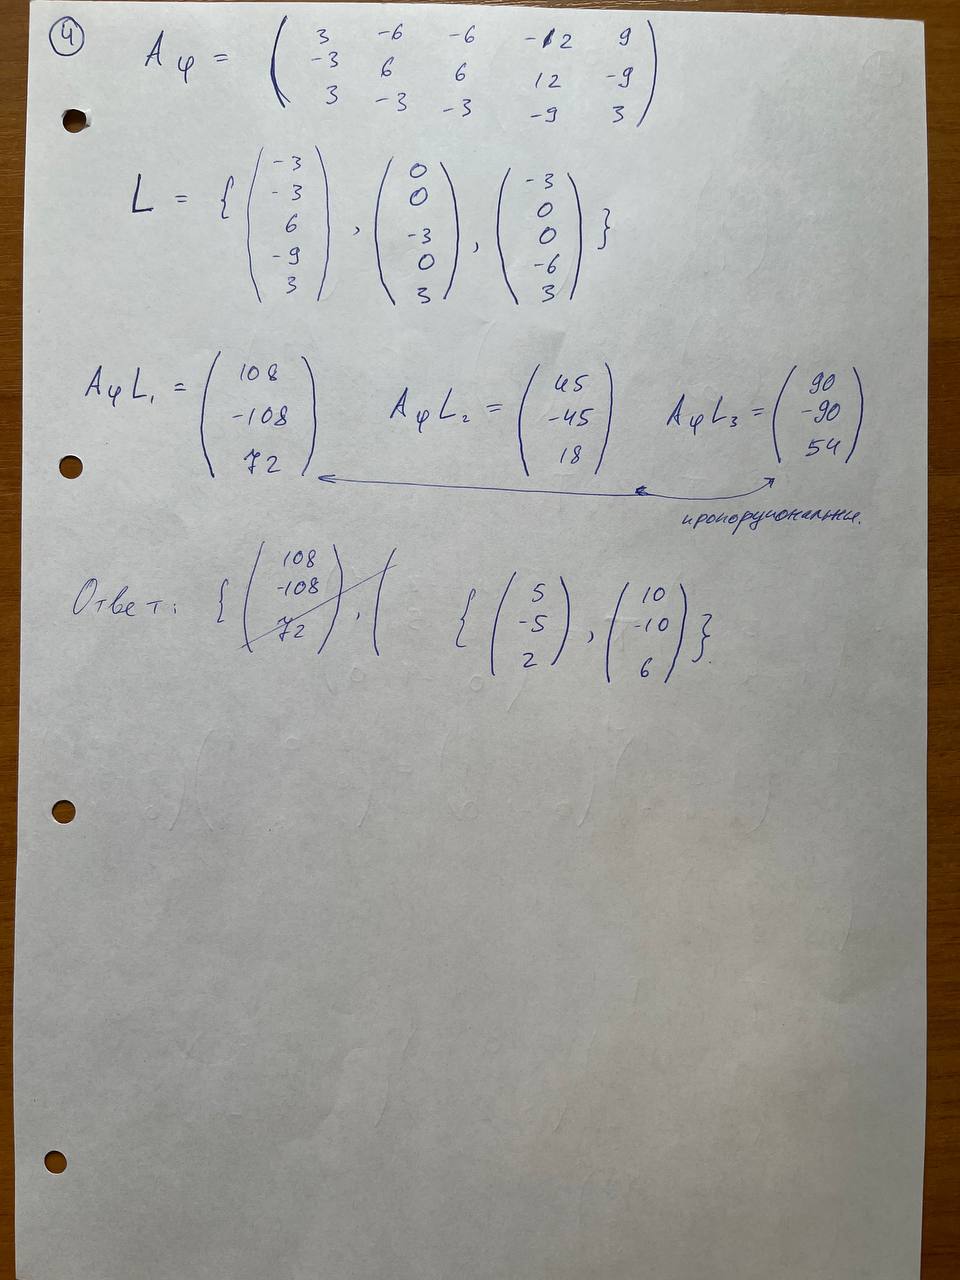 4
Aφ = ( 3 -6 -6 -12 9
-3 6 6 12 -9
3 -3 -3 -9 3 )
L = { ( -3 -3 6 -9 3 ) , ( 0 0 -3 0 3 ) , ( -3 0 0 -6 3 ) }
AφL₁ = ( 108 -108 72 ) AφL₂ = ( 45 -45 18 ) AφL₃ = ( 90 -90 54 )
пропорциональны.
Ответ: { ( 108 -108 72 ) , ( { ( 5 -5 2 ) , ( 10 -10 6 ) }.